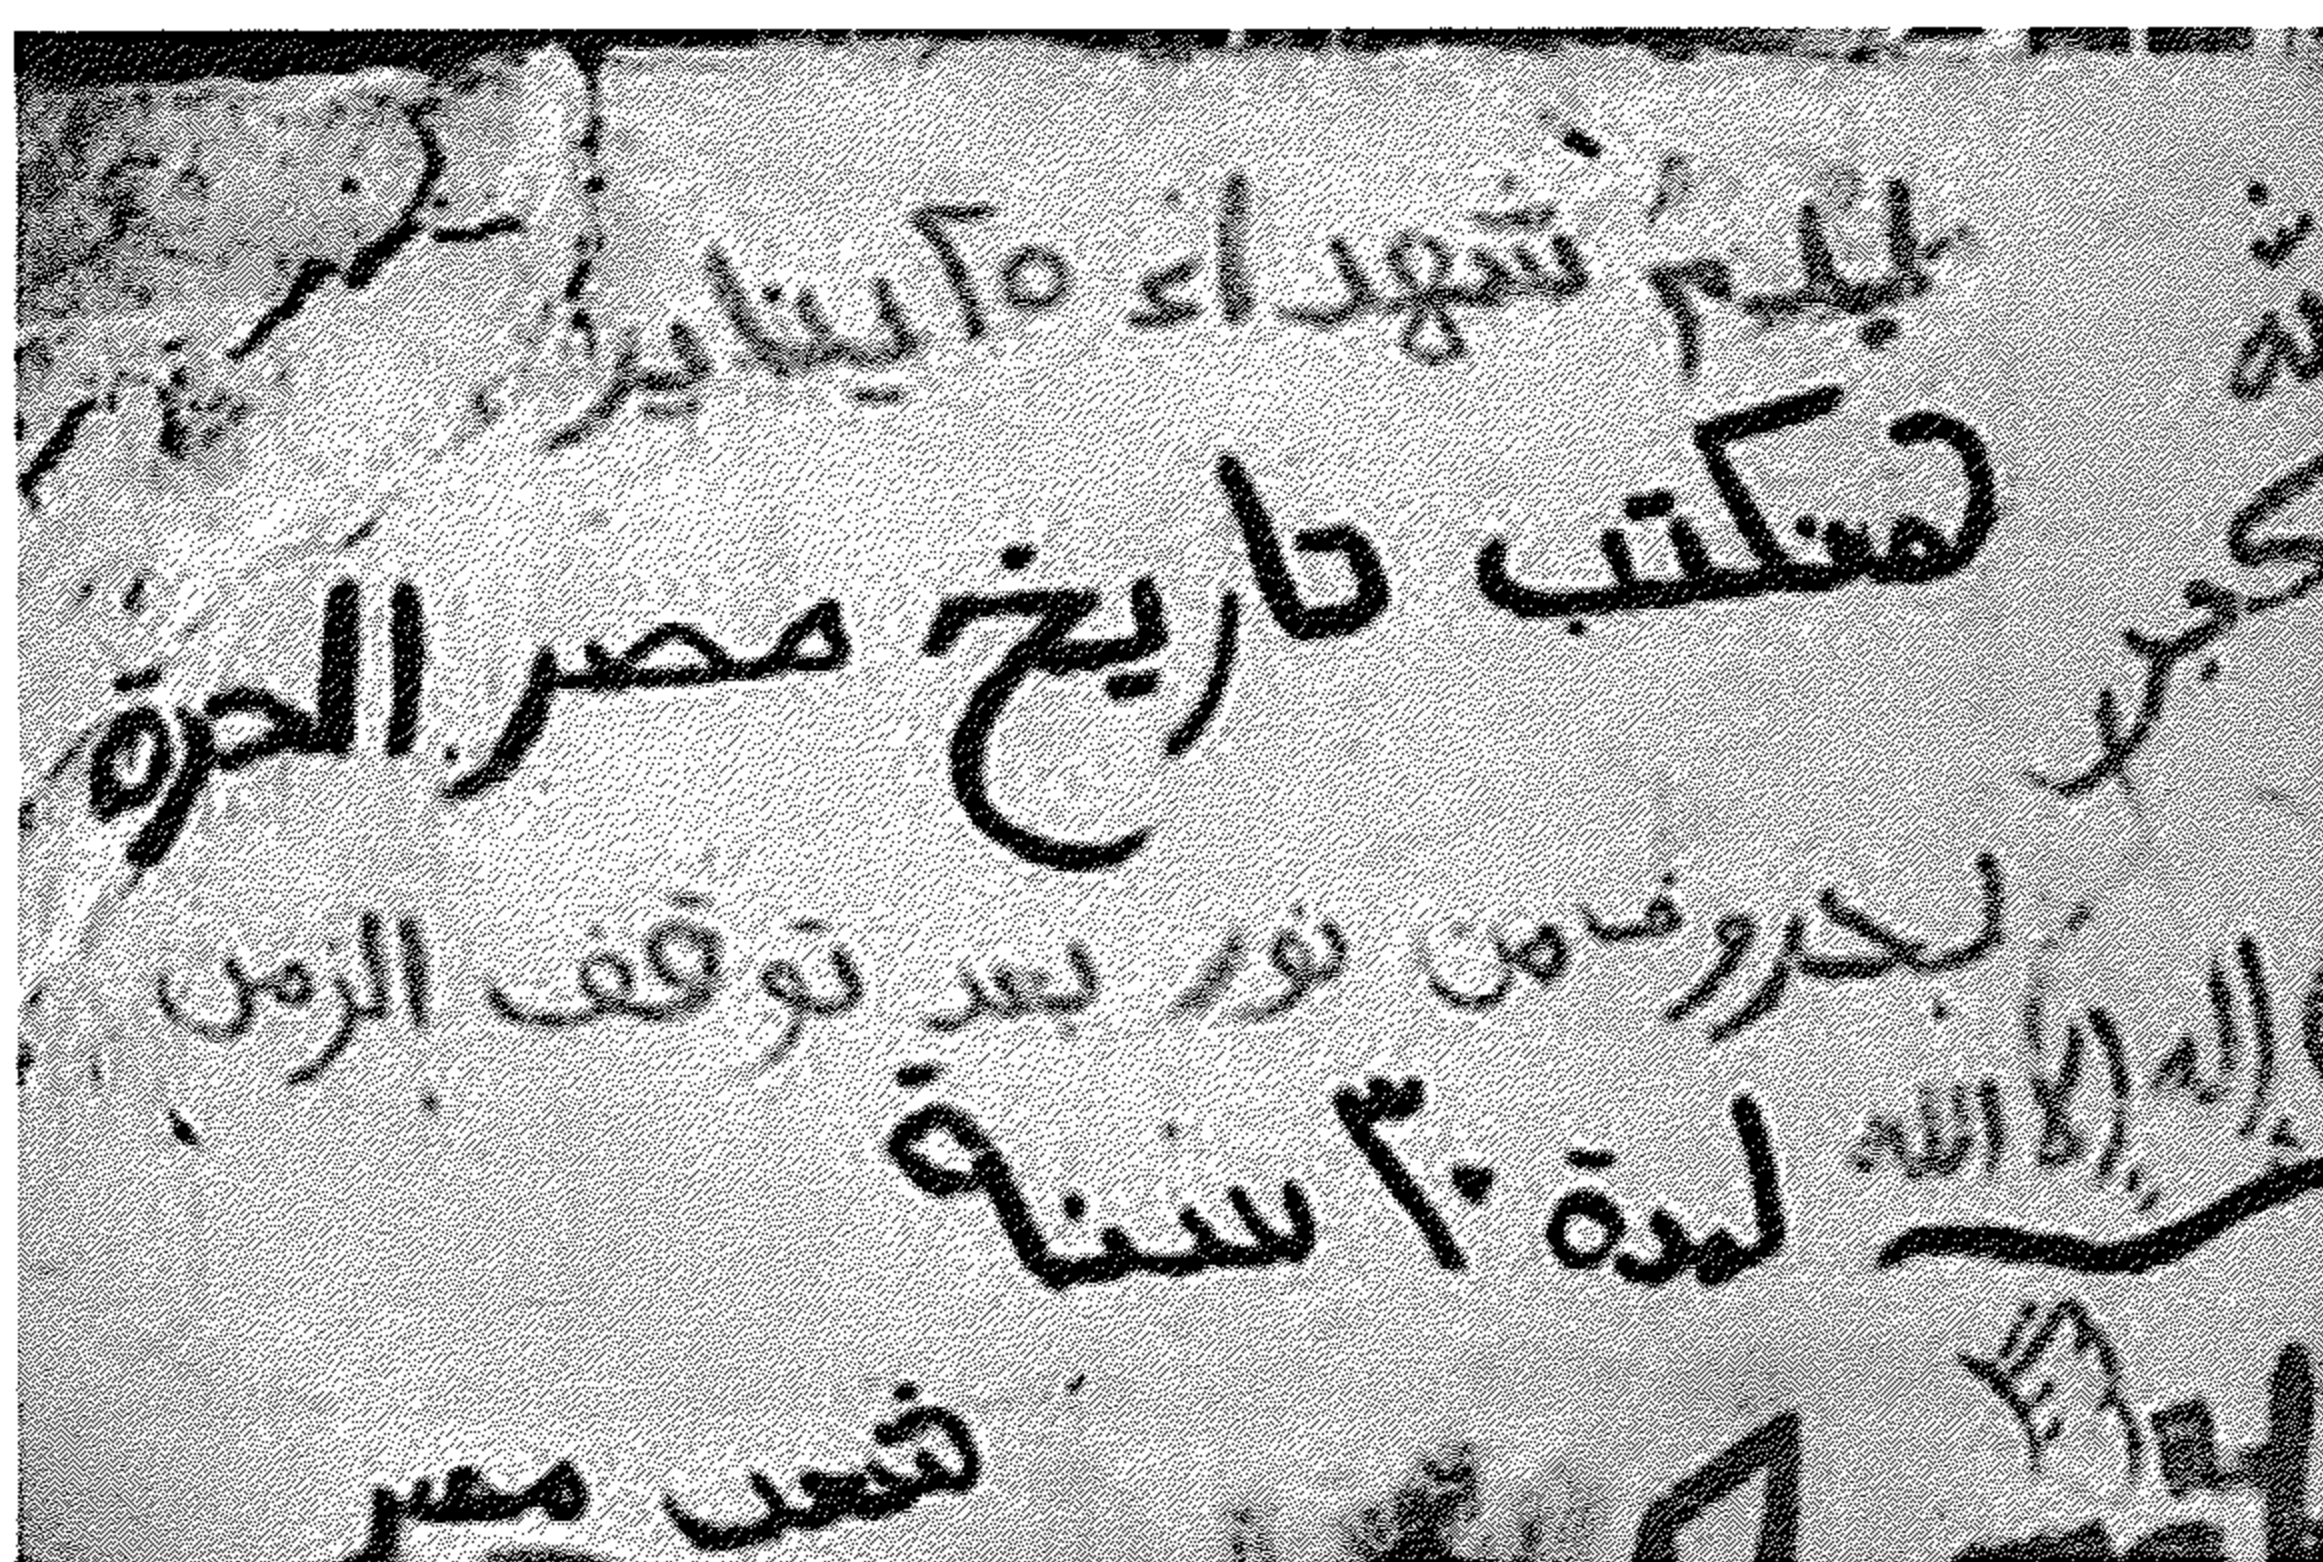 بدم شهداء ٢٥ يناير
هنكتب تاريخ مصر الحرة
بحروف من نور بعد توقف الزمن
لمدة ٣٠ سنة
إله إلا الله
شعب مصر